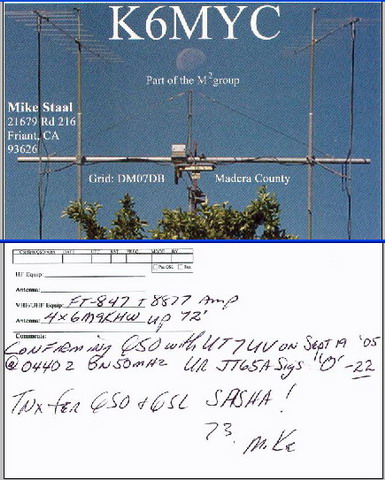 K6MYC
Part of the M²group
Mike Staal
21679 Rd 216
Friant, CA
93626
Grid: DM07DB
Madera County
HF Equip:
Antenna:
VHF/UHF Equip: FT-847 + 8877 Amp
Antenna: 4x6M9KHW up 72'
Comments:
CONFIRMING QSO with UT7UV on SEPT 19 '05
@ 0440Z ON 50MHZ UR JT65A Sigs "O" -22
TNX fer QSO & QSL SASHA!
73,
MIKE